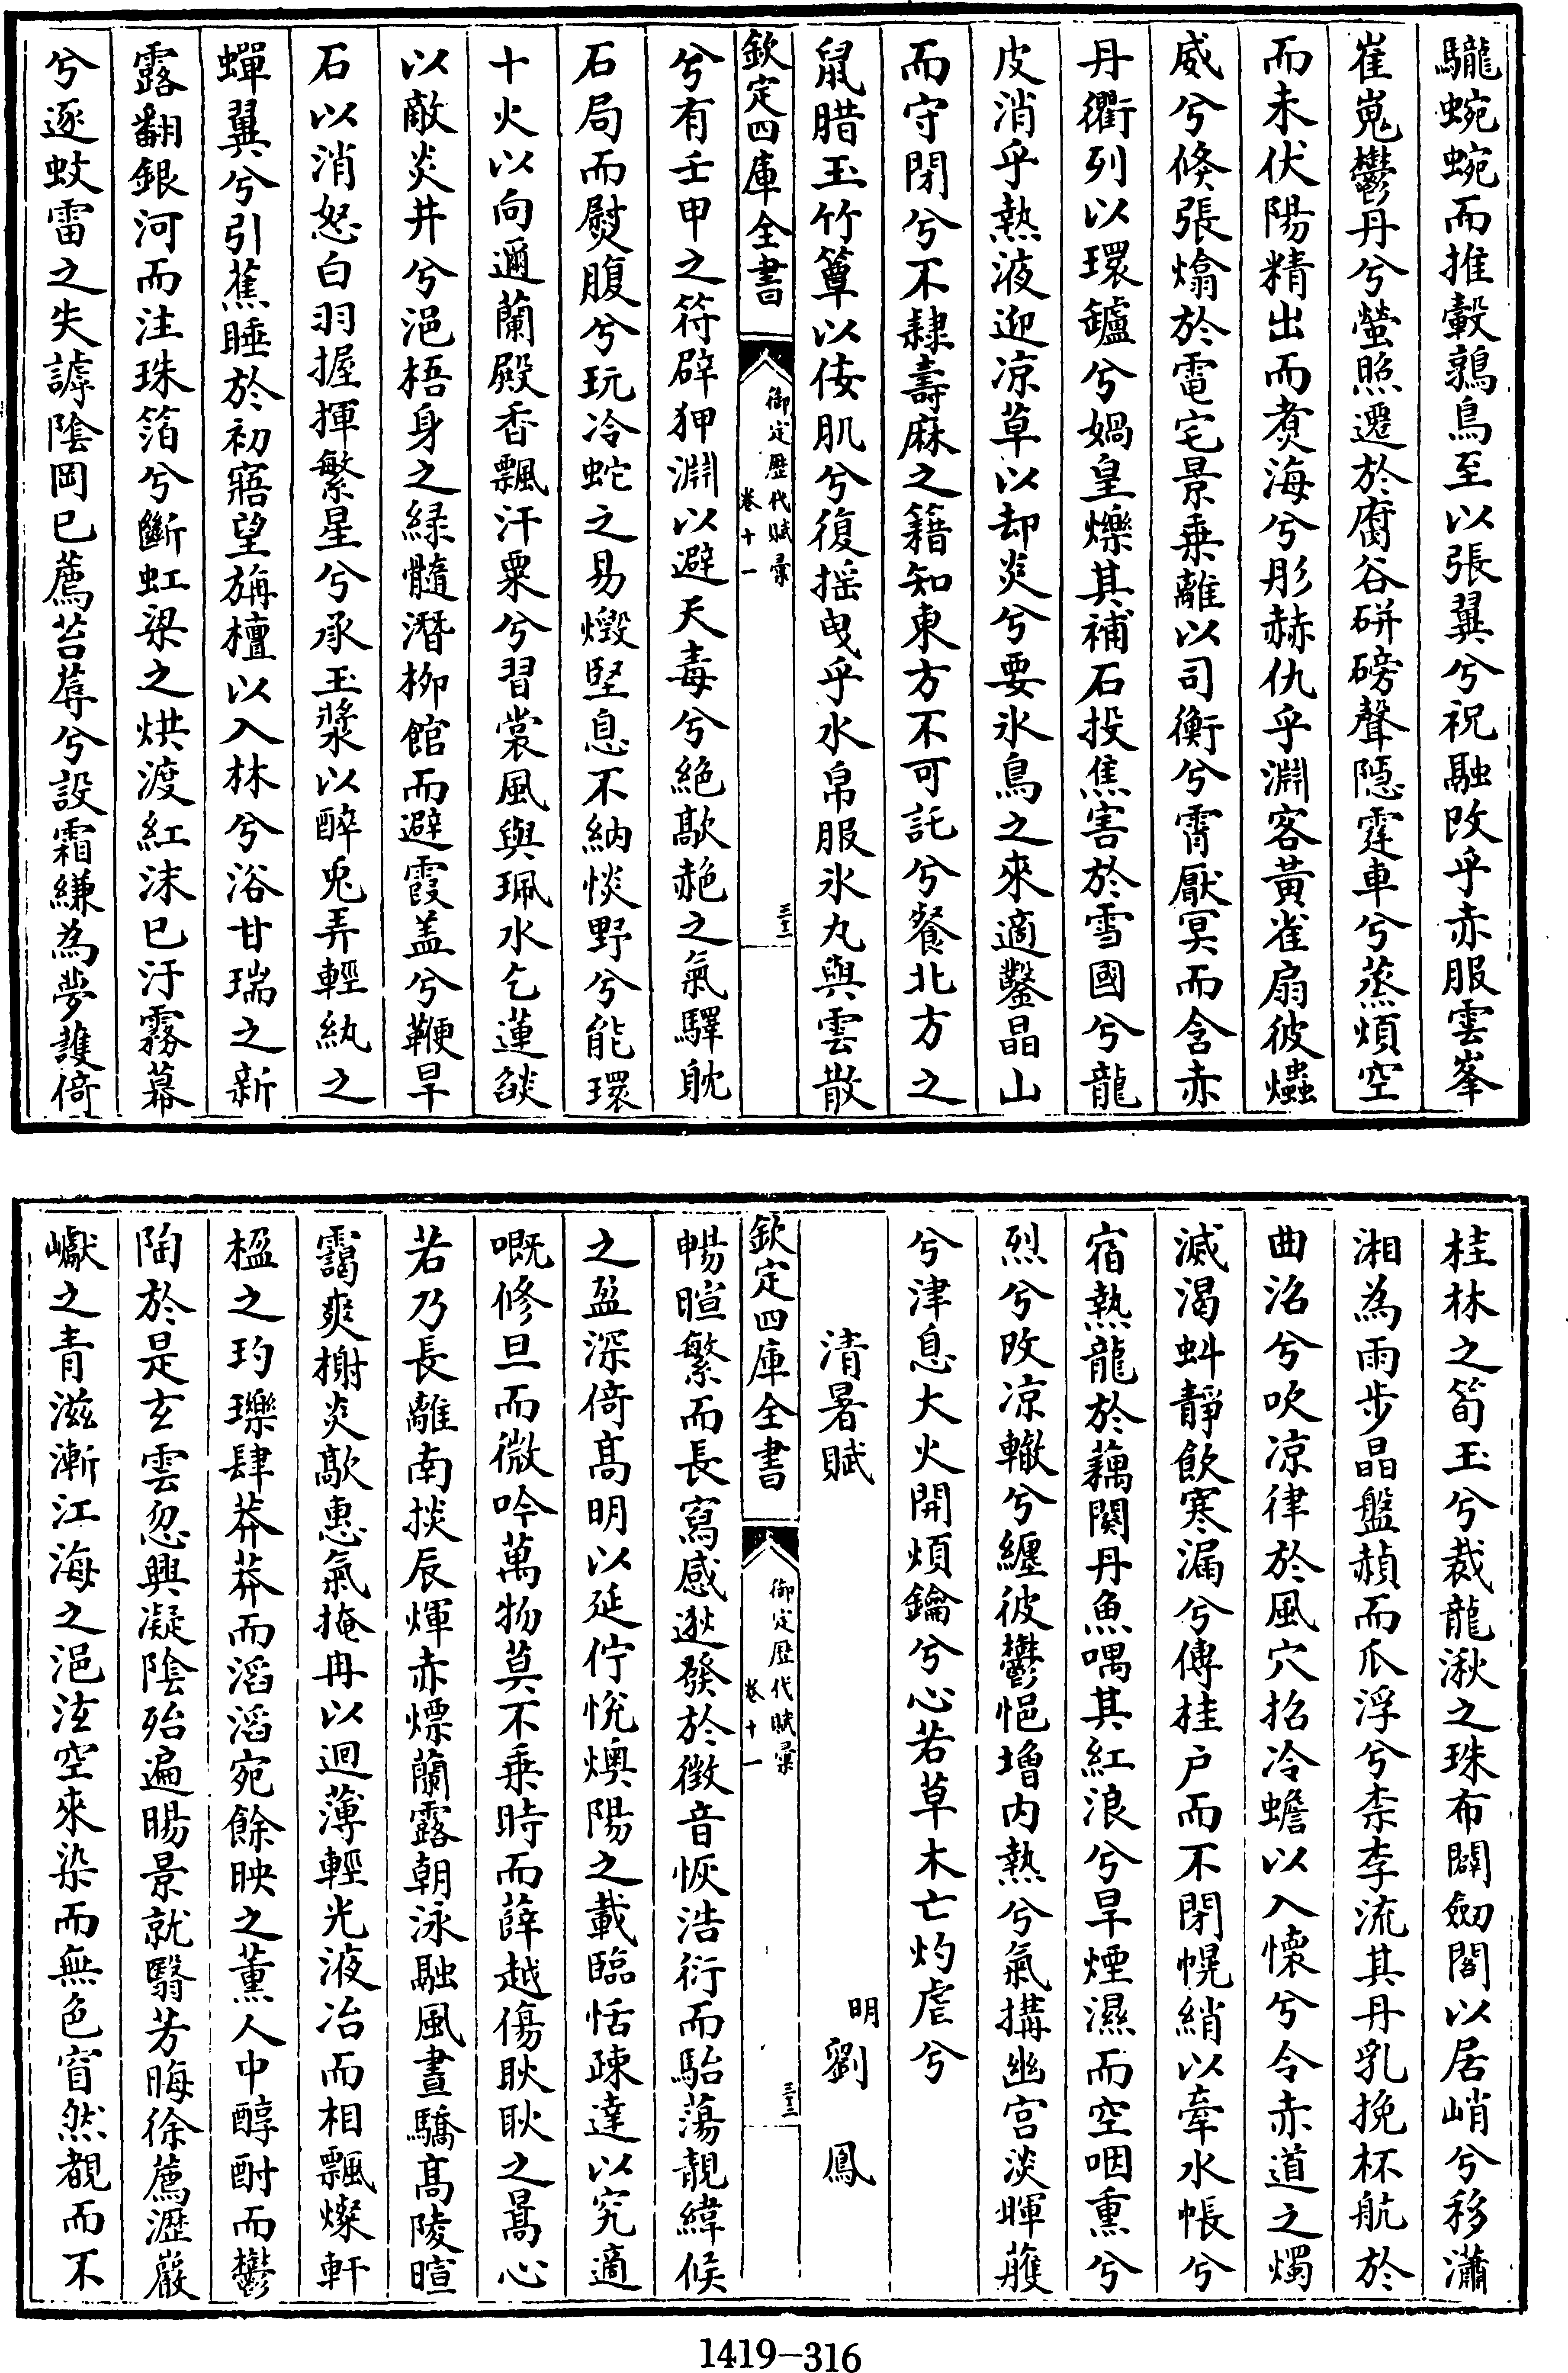 驪蜿蜿而推轂鶉鳥至以張翼兮祝融改乎赤服雲峯
崔嵬鬱丹兮螢照遷於腐谷硑磅聲隱霆車兮蒸煩空
而未伏陽精出而煑海兮彤赫仇乎淵客黃雀扇彼爞
威兮倏張熻於電宅景乗離以司衡兮霄厭冥而含赤
丹衢列以環鑪兮媧皇爍其補石投焦害於雪國兮龍
皮消乎熱液迎凉草以却炎兮要氷鳥之來適鑿晶山
而守閉兮不隷壽麻之籍知東方不可託兮餐北方之
鼠腊玉竹簟以侒肌兮復揺曳乎水帛服氷丸與雲散
欽定四庫全書
御定歷代賦彙
卷十一
三十二
兮有壬甲之符辟狎淵以避天毒兮絶歊赩之氣驛躭
石局而熨腹兮玩冷蛇之易燬堅息不納惔野兮能環
十火以向邇蘭殿香飄汗粟兮習裳風與珮水乞蓮燄
以敵炎井兮浥梧身之緑髓潛栁館而避霞盖兮鞭旱
石以消怒白羽握揮繁星兮承玉漿以醉兎弄輕紈之
蟬翼兮引蕉睡於初寤望旃檀以入林兮浴甘瑞之新
露翻銀河而注珠箔兮斷虹梁之烘渡紅沫已汙霧幕
兮逐蚊雷之失謼陰岡已薦苔蓐兮設霜縑為夢護倚
桂林之筍玉兮裁龍湫之珠布闢劒閣以居峭兮移瀟
湘為雨步晶盤頳而爪浮兮柰李流其丹乳挽杯航於
曲沼兮吹凉律於風穴招冷蟾以入懷兮令赤道之燭
滅渴蚪靜飲寒漏兮傅桂户而不閉幌綃以牽水帳兮
宿熱龍於藕闕丹魚喁其紅浪兮旱煙濕而空咽熏兮
烈兮改凉轍兮纏彼鬱悒增内熱兮氣搆幽宫淡暉蒦
兮津息大火開煩鑰兮心若草木亡灼虐兮
清暑賦
明
劉鳳
欽定四庫全書
御定歷代賦彙
卷十一
三十三
暢暄繁而長寫感逖發於徵音恢浩衍而駘蕩靚緯候
之盈深倚髙明以延佇恱燠陽之載臨恬疎達以究適
嘅修旦而微吟萬物莫不乗時而薛越傷耿耿之暠心
若乃長離南掞辰煇赤熛蘭露朝泳融風晝驕髙陵暄
靄爽榭炎歊惠氣掩冉以迴薄輕光液冶而相飄燦軒
楹之玓瓅肆莽莽而滔滔宛餘映之薰人中醇酎而鬱
陶於是玄雲忽興凝陰殆遍暘景就翳芳晦徐薦瀝巖
巘之青滋漸江海之浥泫空來染而無色窅然覩而不
1419-316